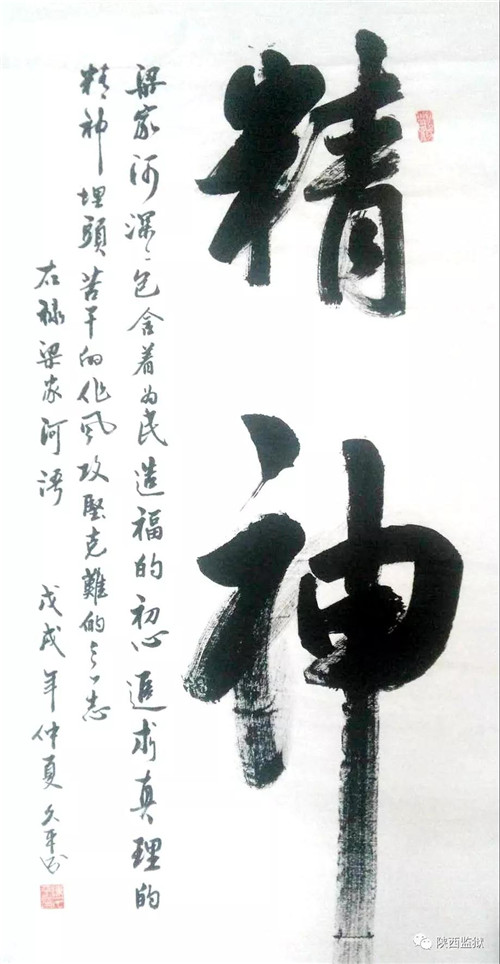 精神
梁家河深深包含着为民造福的初心追求真理的
精神埋頭苦干的作风攻堅克難的意志
右禄梁家河语
戊戌年仲夏久平书
陕西监狱